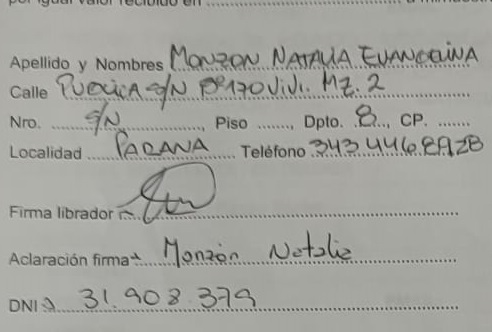 por igual valor recibido en
Apellido y Nombres MONZON NATALIA EVANGELINA
Calle PUBLICA S/N Bº 170 VIVI. MZ. 2
Nro. S/N, Piso ......, Dpto. 8, CP. .......
Localidad PARANA Teléfono
Firma librador
Aclaración firma Monzón Natalia
DNI 31.908.379